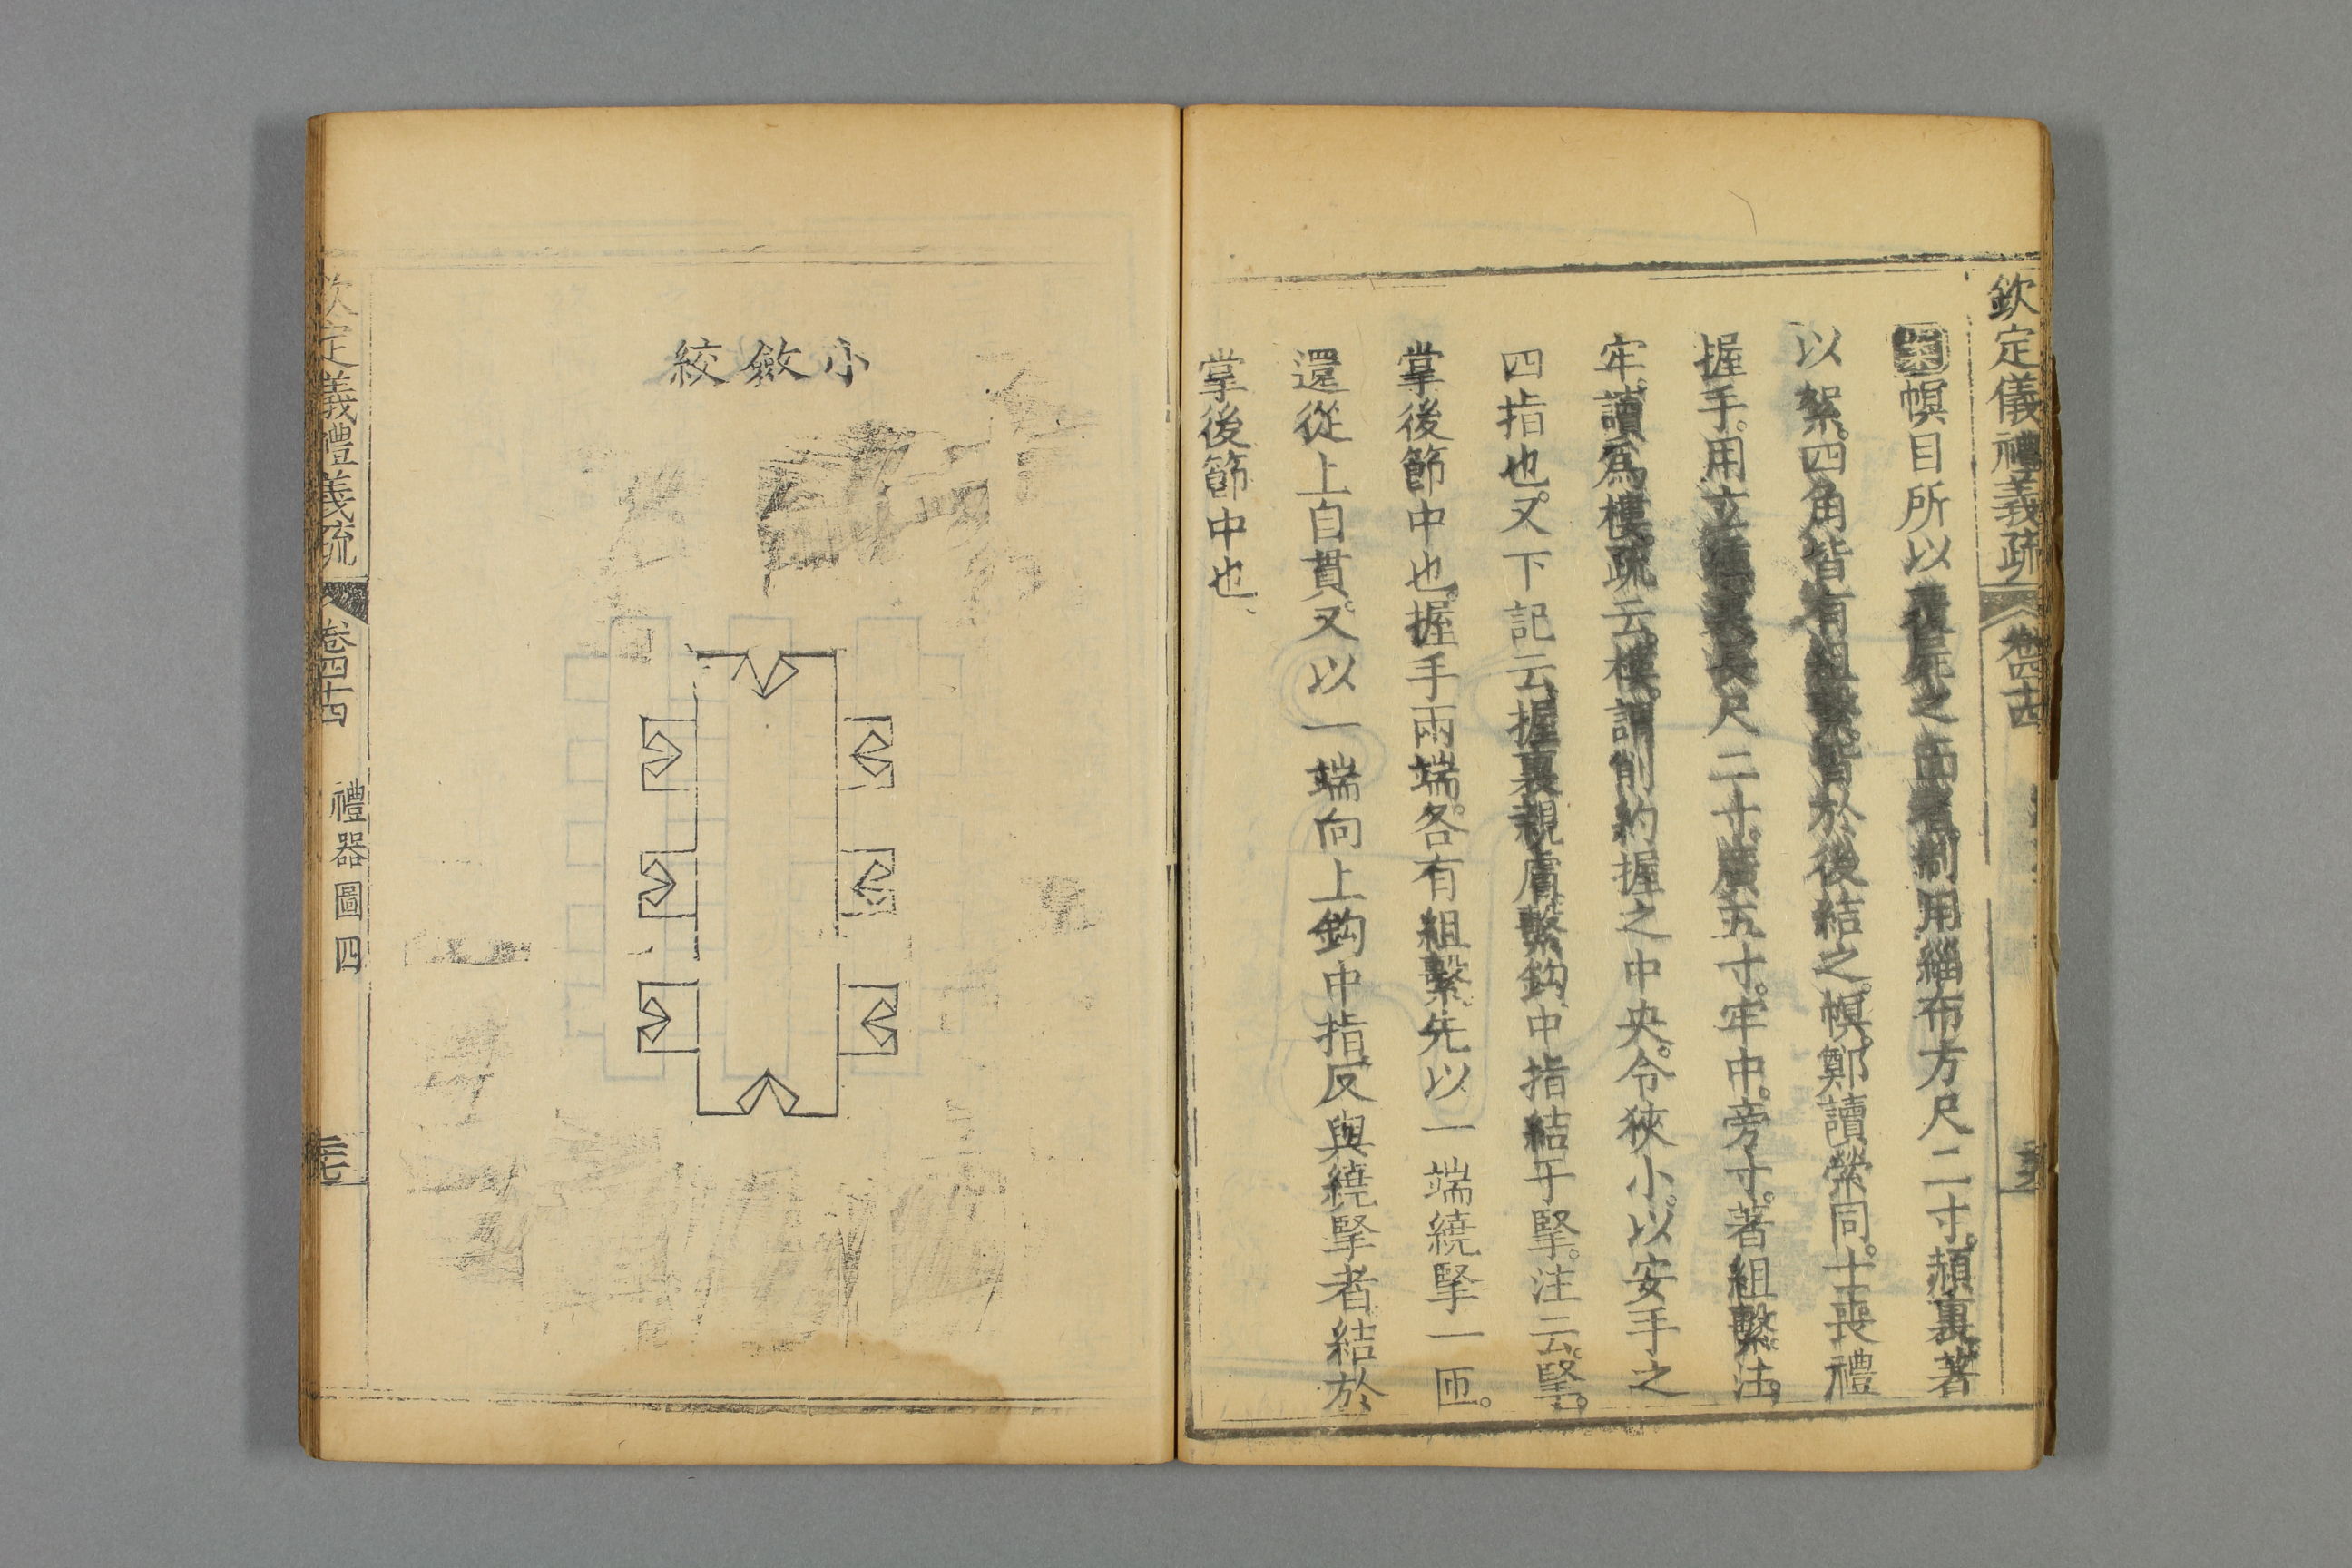 欽定儀禮義疏 卷四十四
幎目所以覆尸之面者制用緇布方尺二寸。赬裏。著
以絮。四角皆有組繫皆於後結之。幎。鄭讀縈同。士喪禮
握手。用玄纁裏。長尺二寸。廣五寸。牢中。旁寸。著組繫。注
牢。讀爲樓。疏云。樓。謂削約握之中央。令狹小。以安手之
四指也。又下記云握裏親膚。繫鈎中指結于掔。注云。掔。
掌後節中也。握手兩端。各有組繫。先以一端繞掔一匝。
還從上自貫。又以一端向上鈎中指反與繞掔者結於
掌後節中也、
小斂絞
欽定義禮義疏 卷四十四 禮器圖四 三七